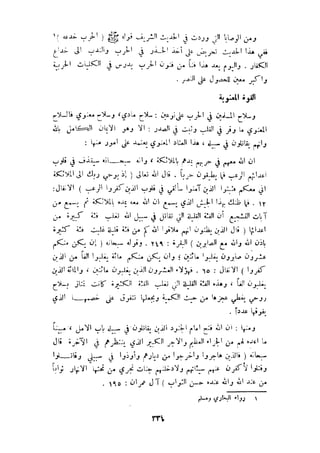 ومن الوصايا التي وردت في الحديث الشريف قوله ﷺ ( الحرب خدعة )١
ففي هذا الحديث تحريض على أخذ الحذر في الحرب والندب إلى خداع
الكفار . واليوم يعد هذا فن من فنون الحرب يدرس في الكليات الحربية
وأكبر معين للحصول على النصر .
القوة المعنوية
سلاح المجاهدين في الحرب على نوعين : سلاح مادي، وسلاح معنوي فالسلاح
المعنوي هو ما وقر في القلب وثبت في الصدر : ألا وهو الإيمان الكامل بك
وإنهم يقاتلون في سبيله ، هذا السلاح المعنوي يعتمد على أمور منها :
١ أن الله معهم في حربهم يمدهم بالملائكة ، وأنه سبحانه سيقذف في قلوب
أعدائهم الرعب فلا يطيقون حربا . قال الله تعالى ( إذ يوحي ربك إلى الملائكة
أني معكم فثبتوا الذين آمنوا سألقي في قلوب الذين كفروا الرعب ) الأنفال :
١٢ . فما بالك بهذا الجيش الذي يسمع أن الله معه يمده بملائكته ثم يسمع من
آيات التشجيع أن الفئة القليلة التي تقاتل في سبيل الله تغلب فئة كبيرة من
أعدائها ( قال الذين يظنون أنهم ملاقوا الله كم من فئة قليلة غلبت فئة كثيرة
بإذن الله والله مع الصابرين ) البقرة : ٢٤٩ . وقوله سبحانه ( إن يكن منكم
عشرون صابرون يغلبوا مائتين ، وإن يكن منكم مائة يغلبوا ألفا من الذين
كفروا ) الأنفال : ٦٥ . فهؤلاء العشرون الذين يغلبون مائتين ، والمائة الذين
يغلبون ألفا ، وهذه الفئة القليلة التي تغلب الفئة الكثيرة كانت تمتاز بسلاح
روحي يفقده غيرها من حيث الكمية ويجعلها تتفوق على خصمها الذي
يفوقها عددا .
ومنها : أن الله فتح أمام الجنود الذين يقاتلون في سبيله باب الأمل ، فبينما
ما أعد لهم من الأجر العظيم والأجر الكبير الذي ينتظرهم في الآخرة قال
سبحانه ( فالذين هاجروا وأخرجوا من ديارهم وأوذوا في سبيلي وقاتلوا
وقتلوا لأكفرن عنهم سيئاتهم ولأدخلنهم جنات تجري من تحتها الأنهار ثوابا
من عند الله والله عنده حسن الثواب ) آل عمران : ١٩٥ .
١ رواه البخاري ومسلم
٣٣٤